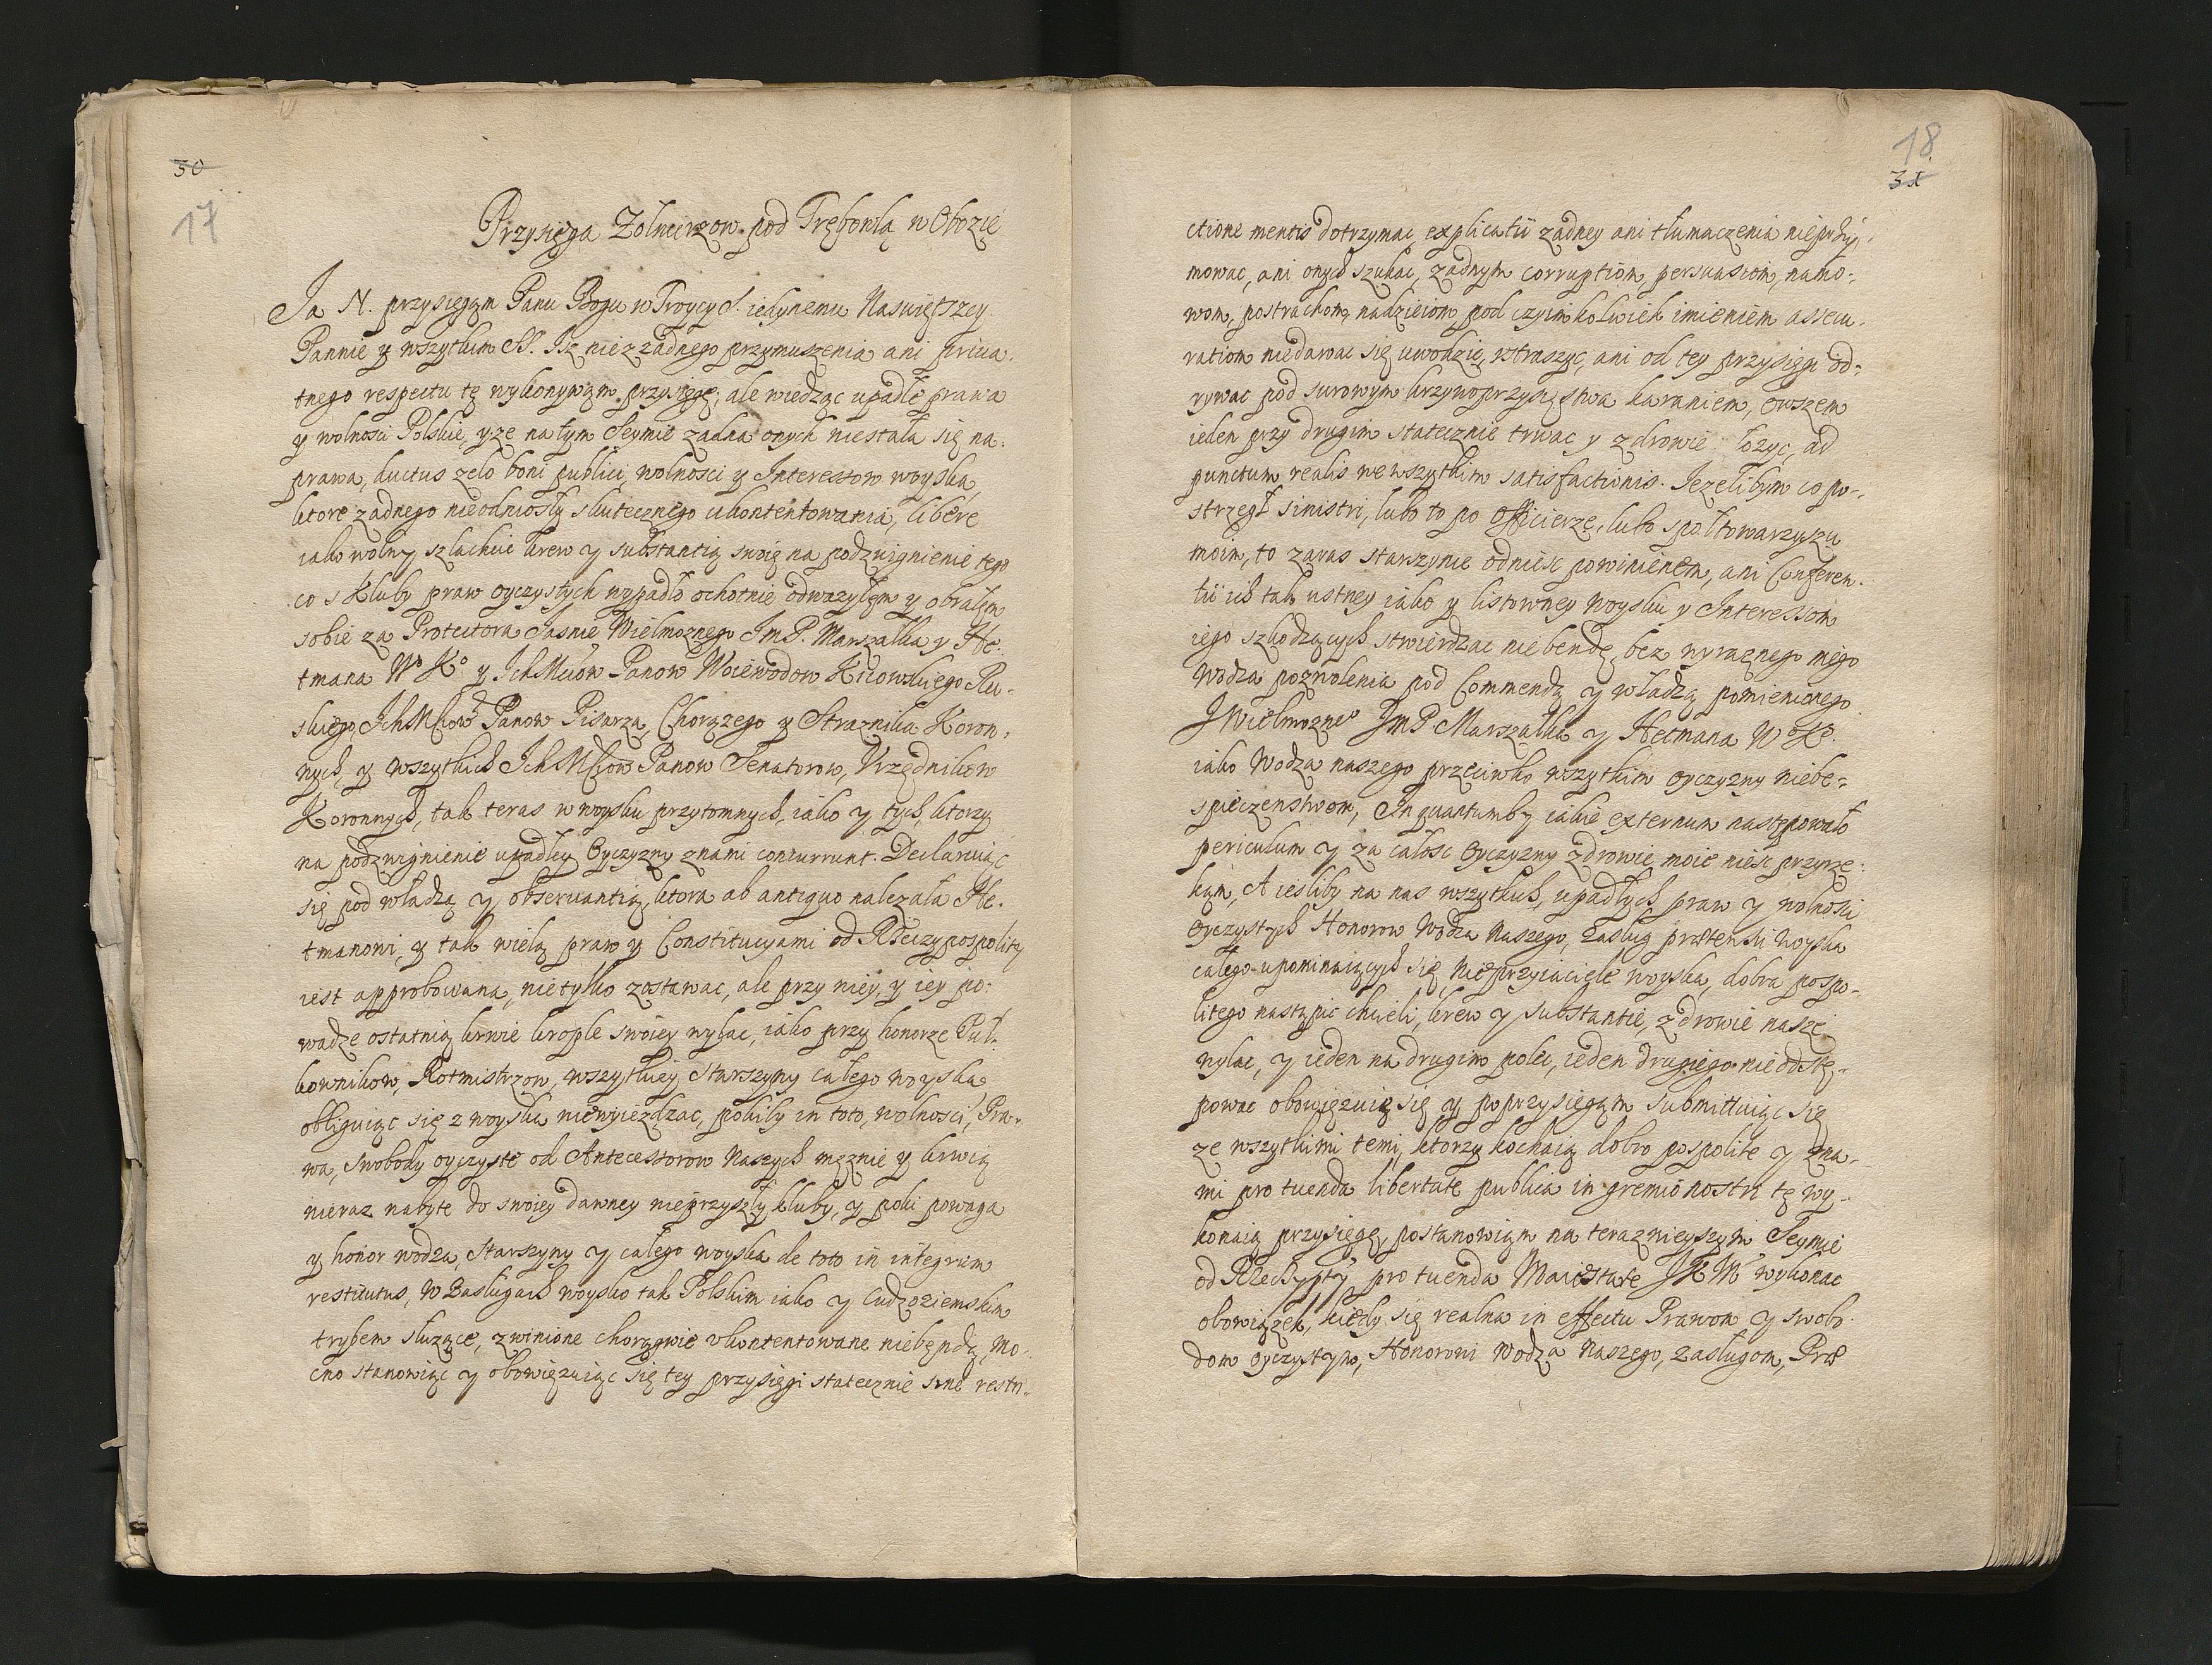 30
17
Przysięga Żołnierzow pod Trębowlą w Obozie
Ja N. przysięgam Panu Bogu w Troycy S. iedynemu Naswiętszey
Pannie y wszytkim SS. Iz nie z zadnego przymuszenia ani priua-
tnego respectu tę wykonywam przysięgę, ale wiedząc upadłe prawa
y wolnosci Polskie, y ze na tym Seymie zadna onych niestała się na-
prawa, ductus zelo boni publici, wolnosci y Interessow woyska,
ktore zadnego nieodniosły skutecznego ukontentowania, libere
iako wolny szlachcic krew y substantią swoię na podzwignienie tego
co s kluby praw oyczystych wypadło ochotnie odwazyłem y obrałem
sobie za Protectora Jasnie Wielmoznego JmP. Marszałka y He-
tmana Wº Kº y IchMciow Panow Woiewodow Kiiowskiego Ru-
skiego, IchMsciow Panow Pisarza, Chorązego y Straznika Koron-
nych, y wszytkich IchMsciow Panow Senatorow, Vrzędnikow
Koronnych, tak teras w woysku przytomnych, iako y tych, ktorzy
na podzwignienie upadłey Oyczyzny znami concurrunt. Declaruiąc
się pod władzą y obseruantią ktora ab antiquo nalezała He-
tmanowi, y tak wielą praw y Constitucyami od Rzeczypospolity
iest approbowana, nietylko zostawac, ale przy niey, y iey po-
wadze ostatnią krwie krople swoiey wylac, iako przy honorze Puł-
kownikow, Rotmistrzow, wszytkiey Starszyny całego woyska
obliguiąc się z woyska niewyiezdzac, pokiby in toto, wolnosci, Pra-
wa, swobody oyczyste od Antecessorow Naszych męznie y krwią
nieraz nabyte do swoiey dawney nieprzyszły kluby, y poki powaga
y honor wodza, Starszyny y całego woyska de toto in integrum
restitutus, w Zasługach woysko tak Polskim iako y Cudzoziemskim
trybem słuzące, zwinione chorągwie vkontentowane niebędą, mo-
cno stanowiąc y obowięzuiąc się tey przysięgi statecznie sine restri-
18
31
ctione mentis dotrzymac explicatii zadney ani tłumaczenia nieprzyi-
mowac, ani onych szukac, zadnym corruptiom, persuasiom, namo-
wom, postrachom, nadzieiom pod czyimkolwiek imieniem assecu-
ratiom niedawac się uwodzic, vstraszyc, ani od tey przysięgi od-
rywac pod surowym krzywoprzysięstwa karaniem, owszem
ieden przy drugim statecznie trwac y zdrowie łozyc, ad
punctum realis we wszytkim satisfactionis. Jezelibym co po-
strzegł sinistri, lubo to po Officierze, lubo społtowarzyszu
moim, to zaras starszynie odniesc powinienem, ani Conferen-
tii ich tak ustney iako y listowney woysku y Interessom
iego szkodzących stwierdzac niebendę, bez wyraznego mego
Wodza pozwolenia pod Commendą y władzą pomienionego
JWielmoznego JmP. Marszałka y Hetmana Wº Kº
iako Wodza naszego przeciwko wszytkim oyczyzny niebe-
spieczenstwom, In quantumby iakie externum następowało
periculum y za całosc Oyczyzny zdrowie moie niesc przyrze-
kam, A iesliby na nas wszytkich, upadłych praw y wolnosci
Oyczystych Honorow Wodza Naszego, zasług prætensii woyska
całego upominaiących się, Nieprzyiaciele woyska, dobra pospo-
litego nastąpic chcieli, krew y substantie, zdrowie nasze
wylac, y ieden na drugim polec, ieden drugiego nieodstę-
powac obowięzuię się y poprzysięgam submittuiąc się
ze wszytkimi temi, ktorzy kochaią dobro pospolite y zna-
mi pro tuenda libertate publica in gremio nostri tę wy-
konaią przysięgę, postanowiąm na terazniejszym Seymie
od Rzechyptey pro tuenda Maiestate JKMº wykonac
obowiązek, kiedy się realna in effectu Prawom y swobo-
dom oyczystym, Honorowi Wodza Naszego, zasługom, Præ